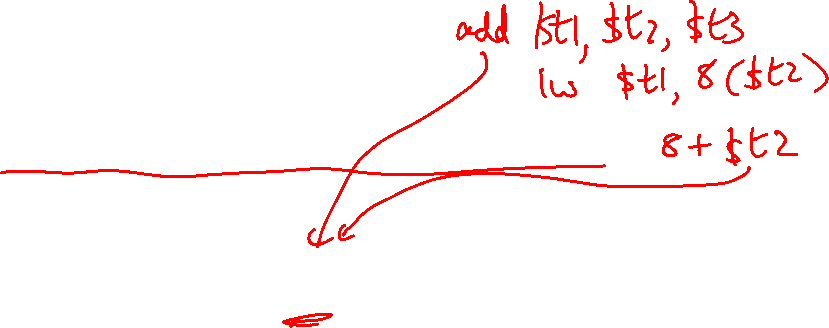 add $t1, $t2, $t3
lw $t1, 8($t2)
8 + $t2